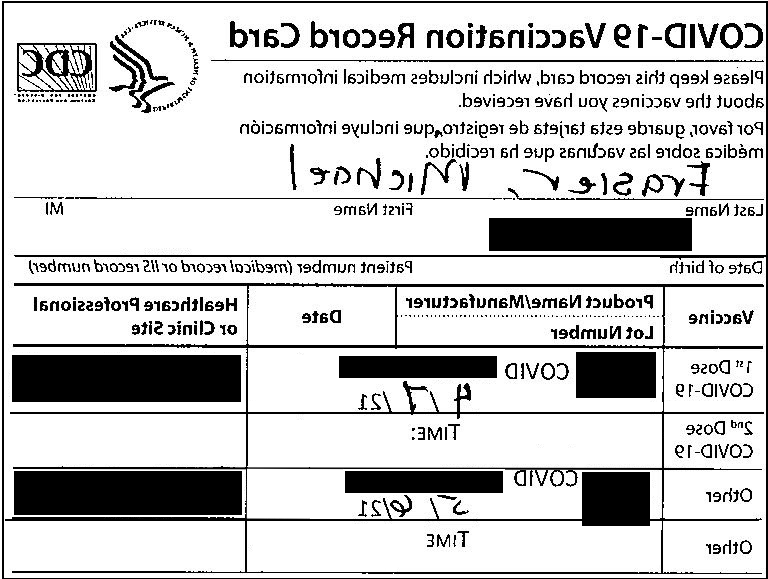 COVID-19 Vaccination Record Card
CDC
Please keep this record card, which includes medical information
about the vaccines you have received.
Por favor, guarde esta tarjeta de registro, que incluye información
médica sobre las vacunas que ha recibido.
Frasier, Michael
Last Name First Name MI
Date of birth Patient number (medical record or IIS record number)
Vaccine Product Name/Manufacturer Date Healthcare Professional
Lot Number or Clinic Site
1st Dose COVID
COVID-19 4/7/21
2nd Dose TIME:
COVID-19
Other COVID
5/6/21
Other TIME